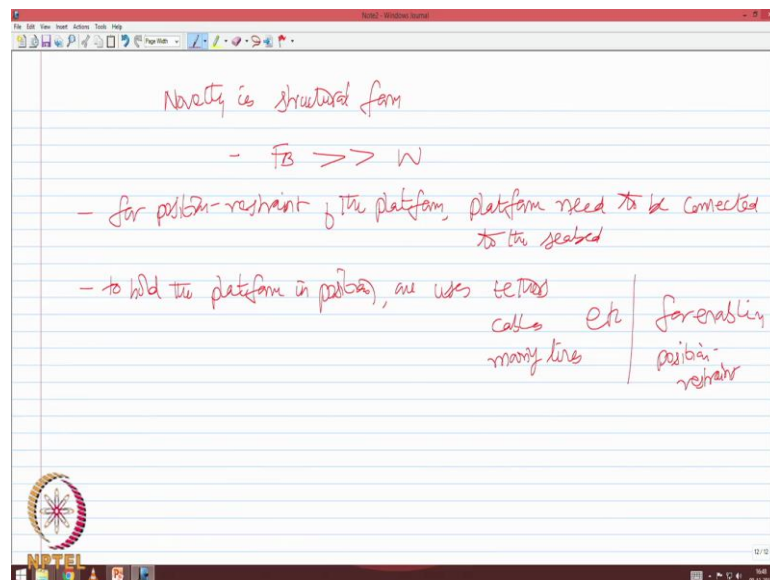 Note2 - Windows Journal
File Edit View Insert Actions Tools Help
Page Width
Novelty is structural form
- FB >> W
- for position-restraint of the platform, platform need to be connected
to the seabed
- to hold the platform in position, one uses tethers
cables etc
for enabling
position-
restraint
NPTEL
12/12